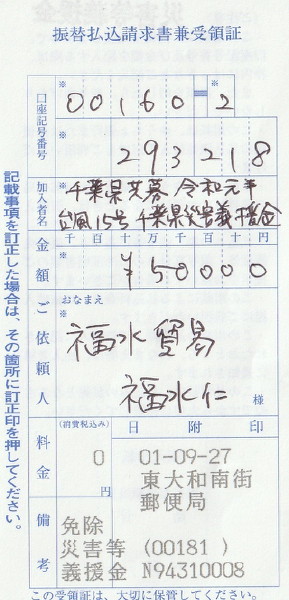 振替払込請求書兼受領証
口座記号番号
※ 00160=2
※ 293218
加入者名
※ 千葉県共募 令和元年
台風15号 千葉県災害義援金
金額
千 百 十 万 千 百 十 円
※ ¥50000
ご依頼人
おなまえ
※
福水貿易
福水仁 様
料金
(消費税込み)
0
円
日附印
01-09-27
東大和南街
郵便局
備考
免除
災害等 (00181 )
義援金 N94310008
記載事項を訂正した場合は、その箇所に訂正印を押してください。
この受領証は、大切に保管してください。